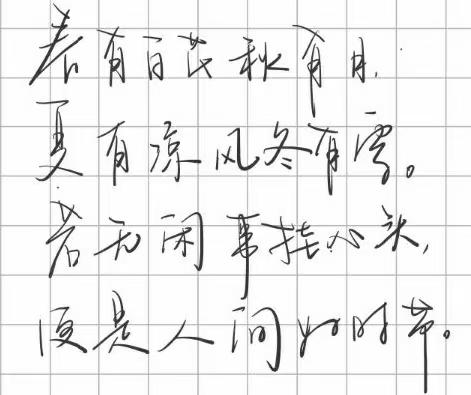 春有百花秋有月,
夏有凉风冬有雪。
若无闲事挂心头,
便是人间好时节。